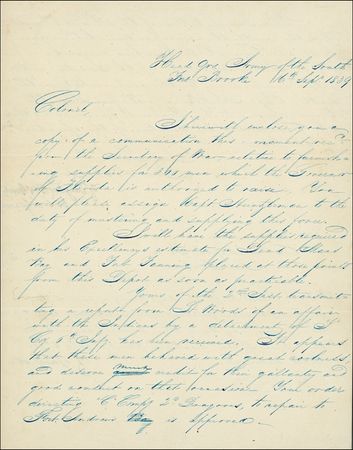 Head Qrs. Army of the South
Fort Brooke 16th Sept 1839
Colonel,
I herewith enclose you a
copy of a communication this moment rec'd
from the Secretary of War, relative to furnish
ing supplies for men which the Governor
of Florida is authorized to raise. You
will please assign Capt to the
duty of mustering and supplying this force.
Shall have the supplies required
in his Excellency's estimate for
and Fort Fanning placed at those points
from this Depot as soon as practicable.
Yours of the 2nd Inst. transmit
ting a report from Lt Woods of an affair
with the Indians by a detachment of
Co 6th Inf. has been received. It appears
that these men behaved with great coolness
and deserve much credit for their gallantry and
good conduct on that occasion. Your order
directing C Compy 2d Dragoons, to repair to
Fort Andrews is approved.